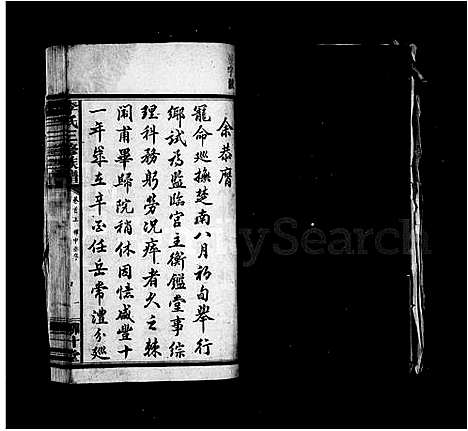 余恭膺
寵命巡撫楚南八月初旬舉行
鄉試為監臨官主衡鑑堂事綜
理科務躬勞況瘁者久之棘
闈甫畢歸院稍休因憶咸豐十
一年歲在辛酉任岳常澧分巡
李氏三修族譜
MySearch